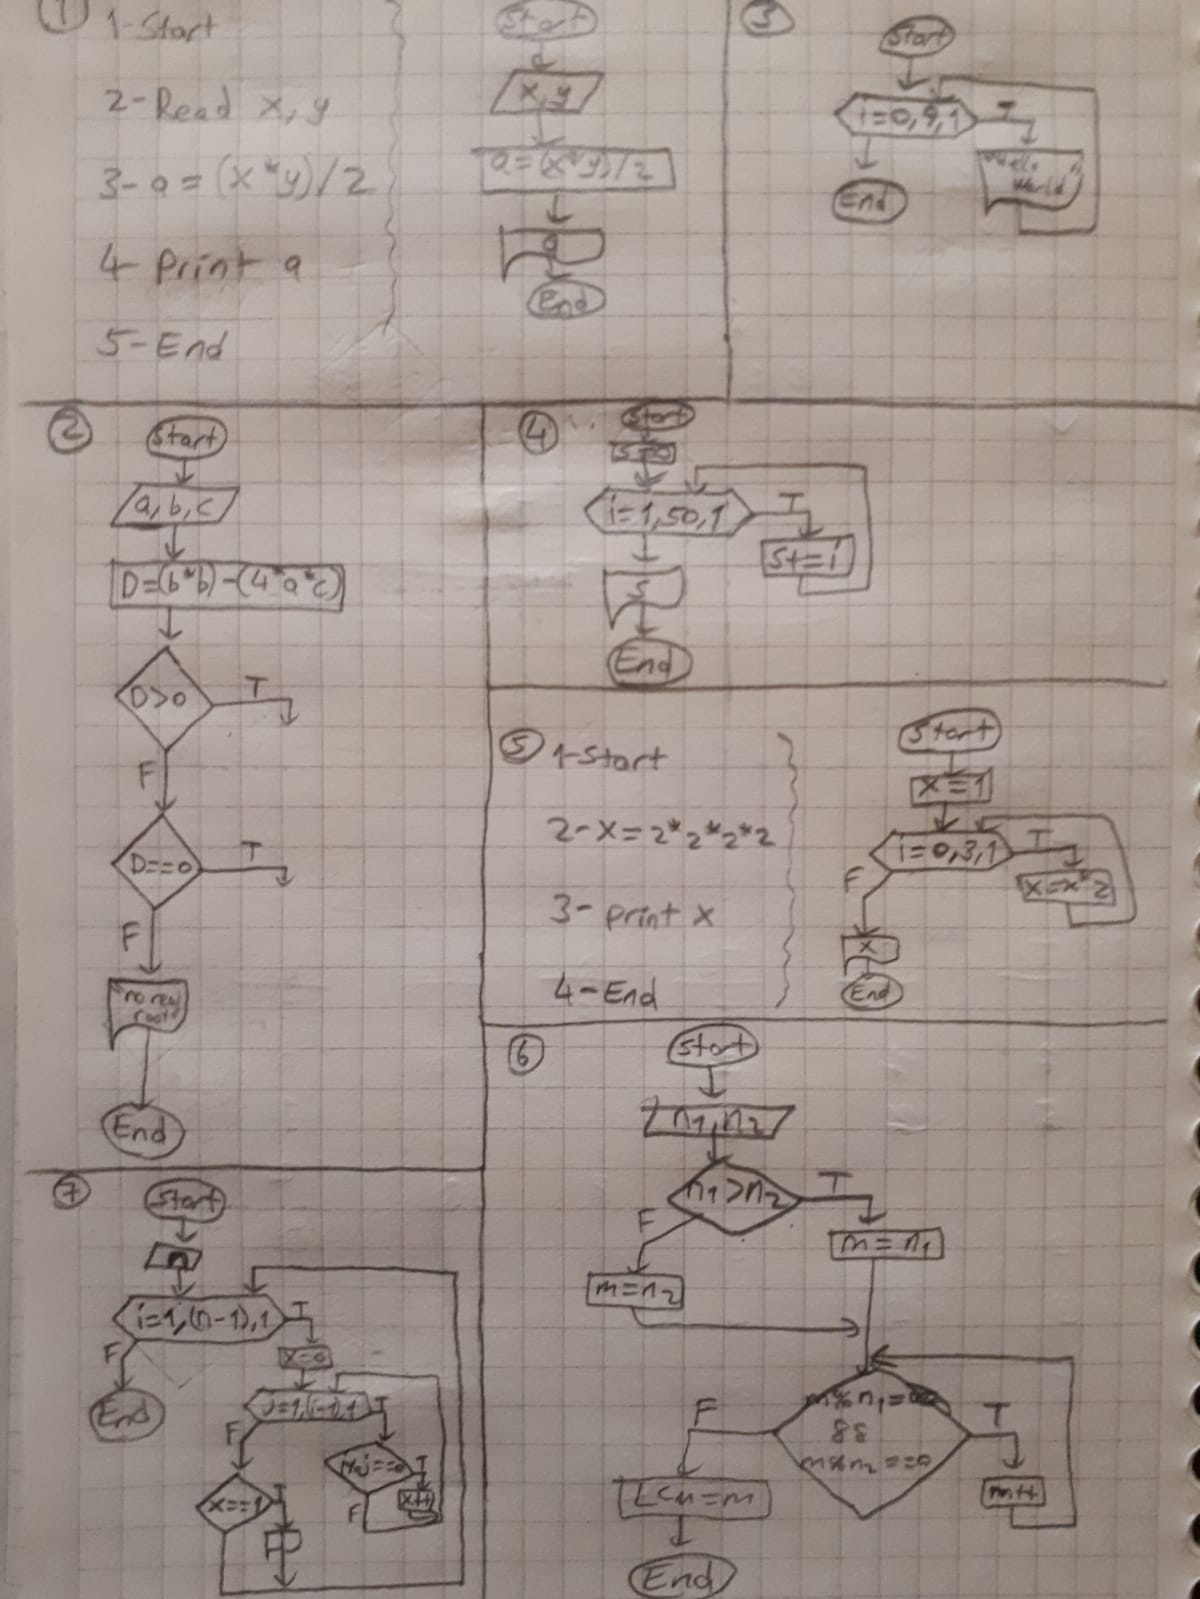 1
1-Start
2-Read x, y
3- a = (x*y)/2
4- Print a
5-End
Start
x, y
a=(x*y)/2
a
End
3
Start
i=0,9,1
T
"Hello
World"
End
2
Start
a, b, c
D=(b*b)-(4*a*c)
D>0
T
F
D==0
T
F
"no real
root"
End
4
Start
s=0
i=1,50,1
T
s+=i
s
End
5
1-Start
2-x=2*2*2*2
3- print x
4-End
Start
x=1
i=0,3,1
T
x=x*2
F
x
End
6
Start
n1, n2
n1>n2
T
F
m=n1
m=n2
m%n1==0
&&
m%n2==0
F
T
m++
LCM=m
End
7
Start
n
i=1,(n-1),1
T
F
x=0
End
j=1,(i-1),1
T
F
i%j==0
T
x++
F
x==1
T